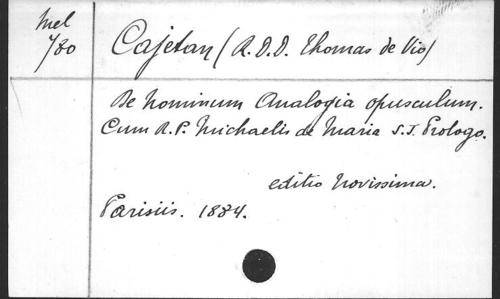 Mel
y/80
Cajetan (R.D.D. Thomas de Vio)
De Nominum Analogia opusculum.
Cum R.P. Michaelis de Maria S.J. Prologo.
editio novissima.
Parisiis. 1884.